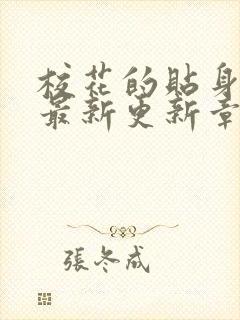 校花的貼身
最新更新章
張冬成